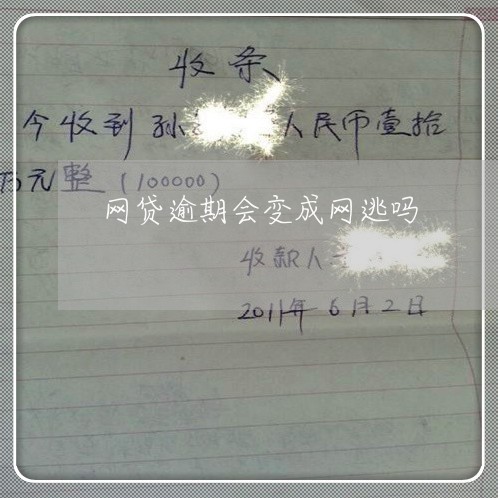 收条
今收到孙人民币壹拾
万元整(100000)
网贷逾期会变成网逃吗
收款人
2011年6月2日